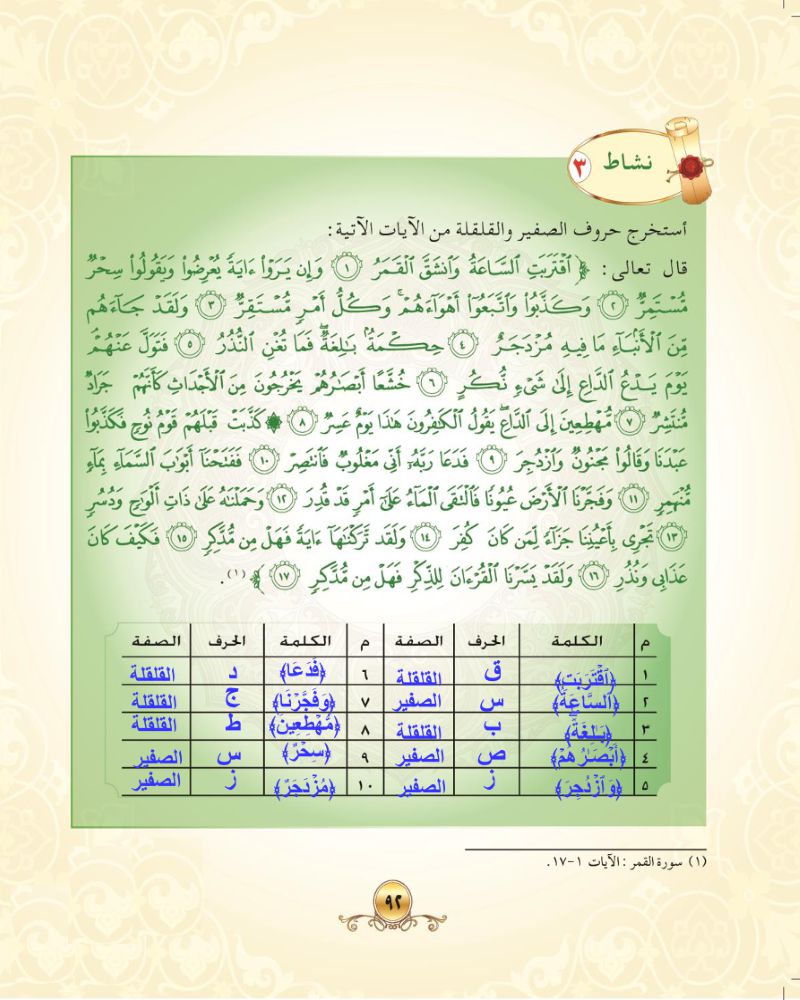 نشاط ٣
أستخرج حروف الصفير والقلقلة من الآيات الآتية:
قال تعالى: ﴿ ٱقۡتَرَبَتِ ٱلسَّاعَةُ وَٱنشَقَّ ٱلۡقَمَرُ ١ وَإِن يَرَوۡاْ ءَايَةٗ يُعۡرِضُواْ وَيَقُولُواْ سِحۡرٞ
مُّسۡتَمِرّٞ ٢ وَكَذَّبُواْ وَٱتَّبَعُوٓاْ أَهۡوَآءَهُمۡۚ وَكُلُّ أَمۡرٖ مُّسۡتَقِرّٞ ٣ وَلَقَدۡ جَآءَهُم
مِّنَ ٱلۡأَنۢبَآءِ مَا فِيهِ مُزۡدَجَرٌ ٤ حِكۡمَةُۢ بَٰلِغَةٞۖ فَمَا تُغۡنِ ٱلنُّذُرُ ٥ فَتَوَلَّ عَنۡهُمۡۘ
يَوۡمَ يَدۡعُ ٱلدَّاعِ إِلَىٰ شَيۡءٖ نُّكُرٍ ٦ خُشَّعًا أَبۡصَٰرُهُمۡ يَخۡرُجُونَ مِنَ ٱلۡأَجۡدَاثِ كَأَنَّهُمۡ جَرَادٞ
مُّنتَشِرٞ ٧ مُّهۡطِعِينَ إِلَى ٱلدَّاعِۖ يَقُولُ ٱلۡكَٰفِرُونَ هَٰذَا يَوۡمٌ عَسِرٞ ٨ ۞ كَذَّبَتۡ قَبۡلَهُمۡ قَوۡمُ نُوحٖ فَكَذَّبُواْ
عَبۡدَنَا وَقَالُواْ مَجۡنُونٞ وَٱزۡدُجِرَ ٩ فَدَعَا رَبَّهُۥٓ أَنِّي مَغۡلُوبٞ فَٱنتَصِرۡ ١٠ فَفَتَحۡنَآ أَبۡوَٰبَ ٱلسَّمَآءِ بِمَآءٖ
مُّنۡهَمِرٖ ١١ وَفَجَّرۡنَا ٱلۡأَرۡضَ عُيُونٗا فَٱلۡتَقَى ٱلۡمَآءُ عَلَىٰٓ أَمۡرٖ قَدۡ قُدِرَ ١٢ وَحَمَلۡنَٰهُ عَلَىٰ ذَاتِ أَلۡوَٰحٖ وَدُسُرٖ
١٣ تَجۡرِي بِأَعۡيُنِنَا جَزَآءٗ لِّمَن كَانَ كُفِرَ ١٤ وَلَقَد تَّرَكۡنَٰهَآ ءَايَةٗ فَهَلۡ مِن مُّدَّكِرٖ ١٥ فَكَيۡفَ كَانَ
عَذَابِي وَنُذُرِ ١٦ وَلَقَدۡ يَسَّرۡنَا ٱلۡقُرۡءَانَ لِلذِّكۡرِ فَهَلۡ مِن مُّدَّكِرٖ ١٧ ﴾ (١).
م الكلمة الحرف الصفة م الكلمة الحرف الصفة
١ ﴿ٱقۡتَرَبَتِ﴾ ق القلقلة ٦ ﴿فَدَعَا﴾ د القلقلة
٢ ﴿ٱلسَّاعَةُ﴾ س الصفير ٧ ﴿وَفَجَّرۡنَا﴾ ج القلقلة
٣ ﴿بَٰلِغَةٞۖ﴾ ب القلقلة ٨ ﴿مُّهۡطِعِينَ﴾ ط القلقلة
٤ ﴿أَبۡصَٰرُهُمۡ﴾ ص الصفير ٩ ﴿سِحۡرٞ﴾ س الصفير
٥ ﴿وَٱزۡدُجِرَ﴾ ز الصفير ١٠ ﴿مُزۡدَجَرٌ﴾ ز الصفير
(١) سورة القمر : الآيات ١-١٧.
٩٢